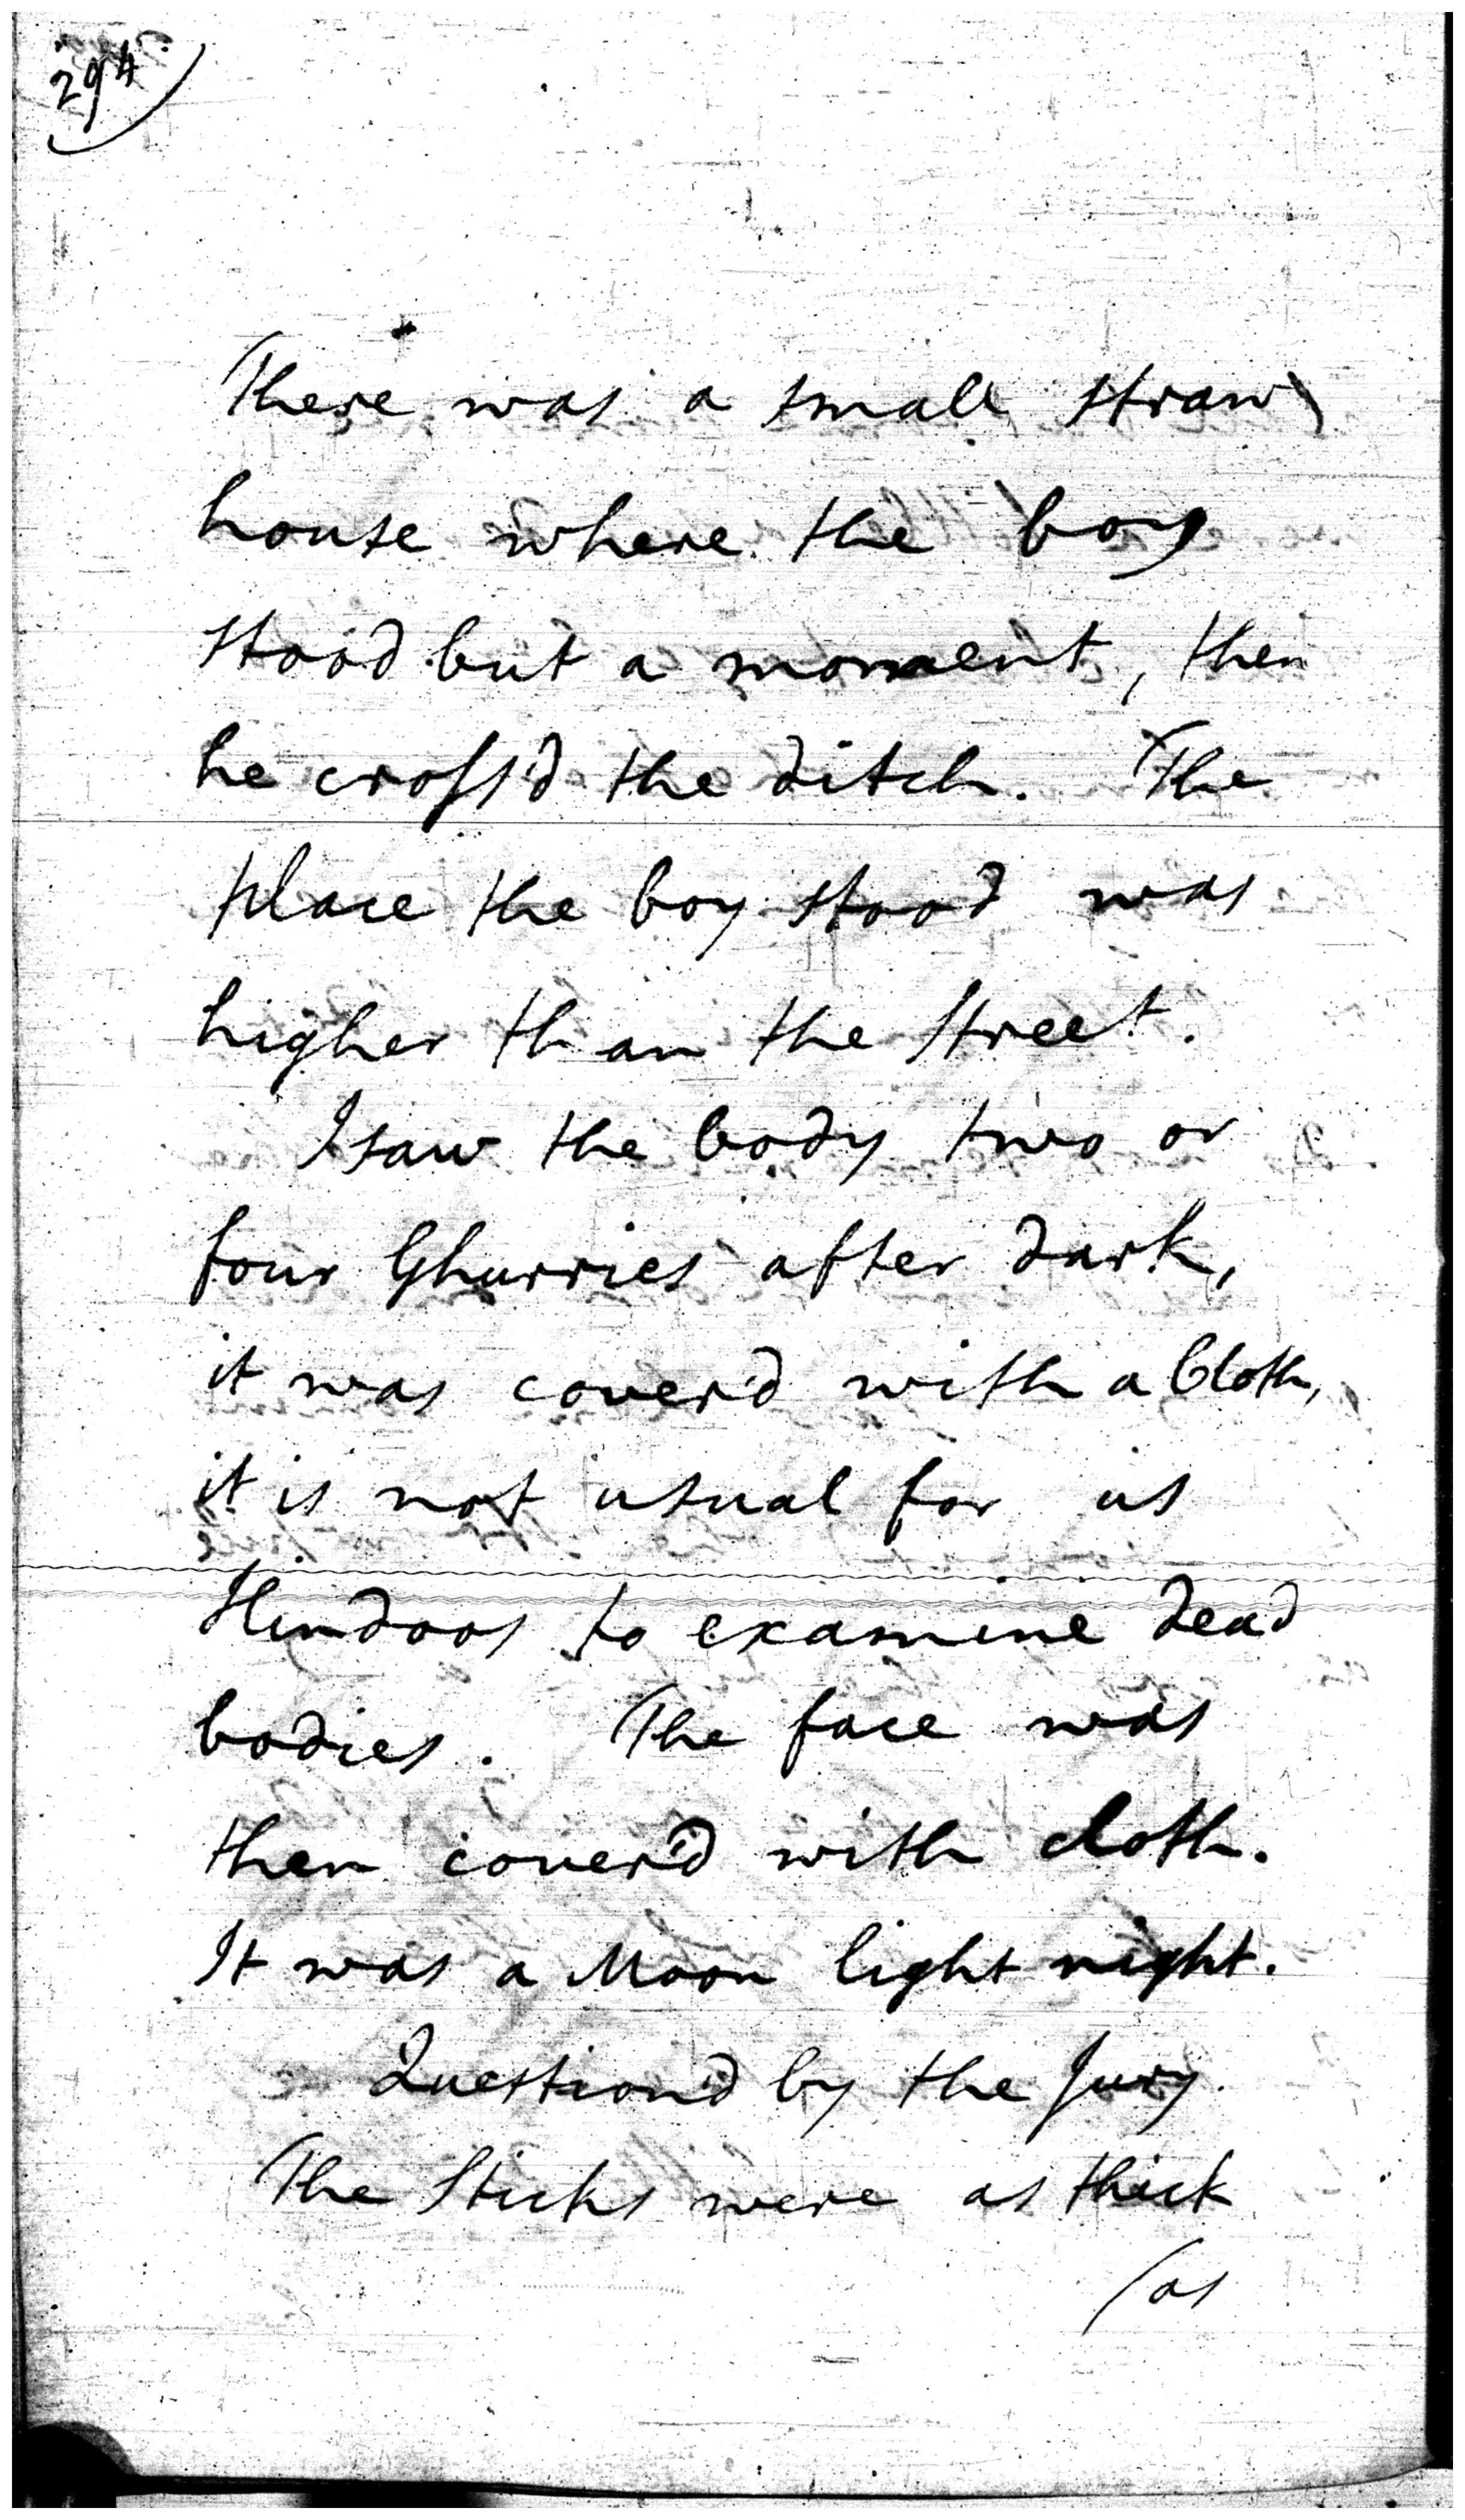 294
There was a small straw
house where the boy
stood but a moment, then
he cross'd the ditch. The
place the boy stood was
higher than the Street.
I saw the body two or
four Ghurries after dark,
it was cover'd with a Cloth,
it is not usual for us
Hindoos to examine dead
bodies. The face was
then cover'd with cloth.
It was a Moon light night.
Question'd by the Jury.
The Sticks were as thick
(as